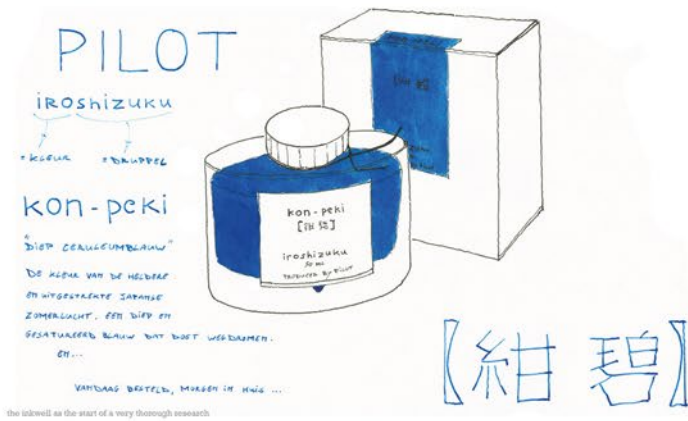 PILOT
iroshizuku
= KLEUR = DRUPPEL
kon-peki
"DIEP CERULEUMBLAUW"
DE KLEUR VAN DE HELDERE
EN UITGESTREKTE JAPANSE
ZOMERLUCHT. EEN DIEP EN
GESATUREERD BLAUW DAT DOET WEGDROMEN.
EN...
VANDAAG BESTELD, MORGEN IN HUIS ...
kon-peki
[紺碧]
iroshizuku
50 ml
PRODUCED BY PILOT
【紺碧】
the inkwell as the start of a very thorough research